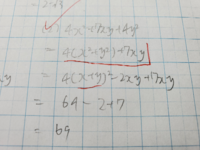 4x²+17xy+4y²
= 4(x²+y²)+17xy
= 4(x+y)²-2xy+17xy
= 64-2+7
= 69